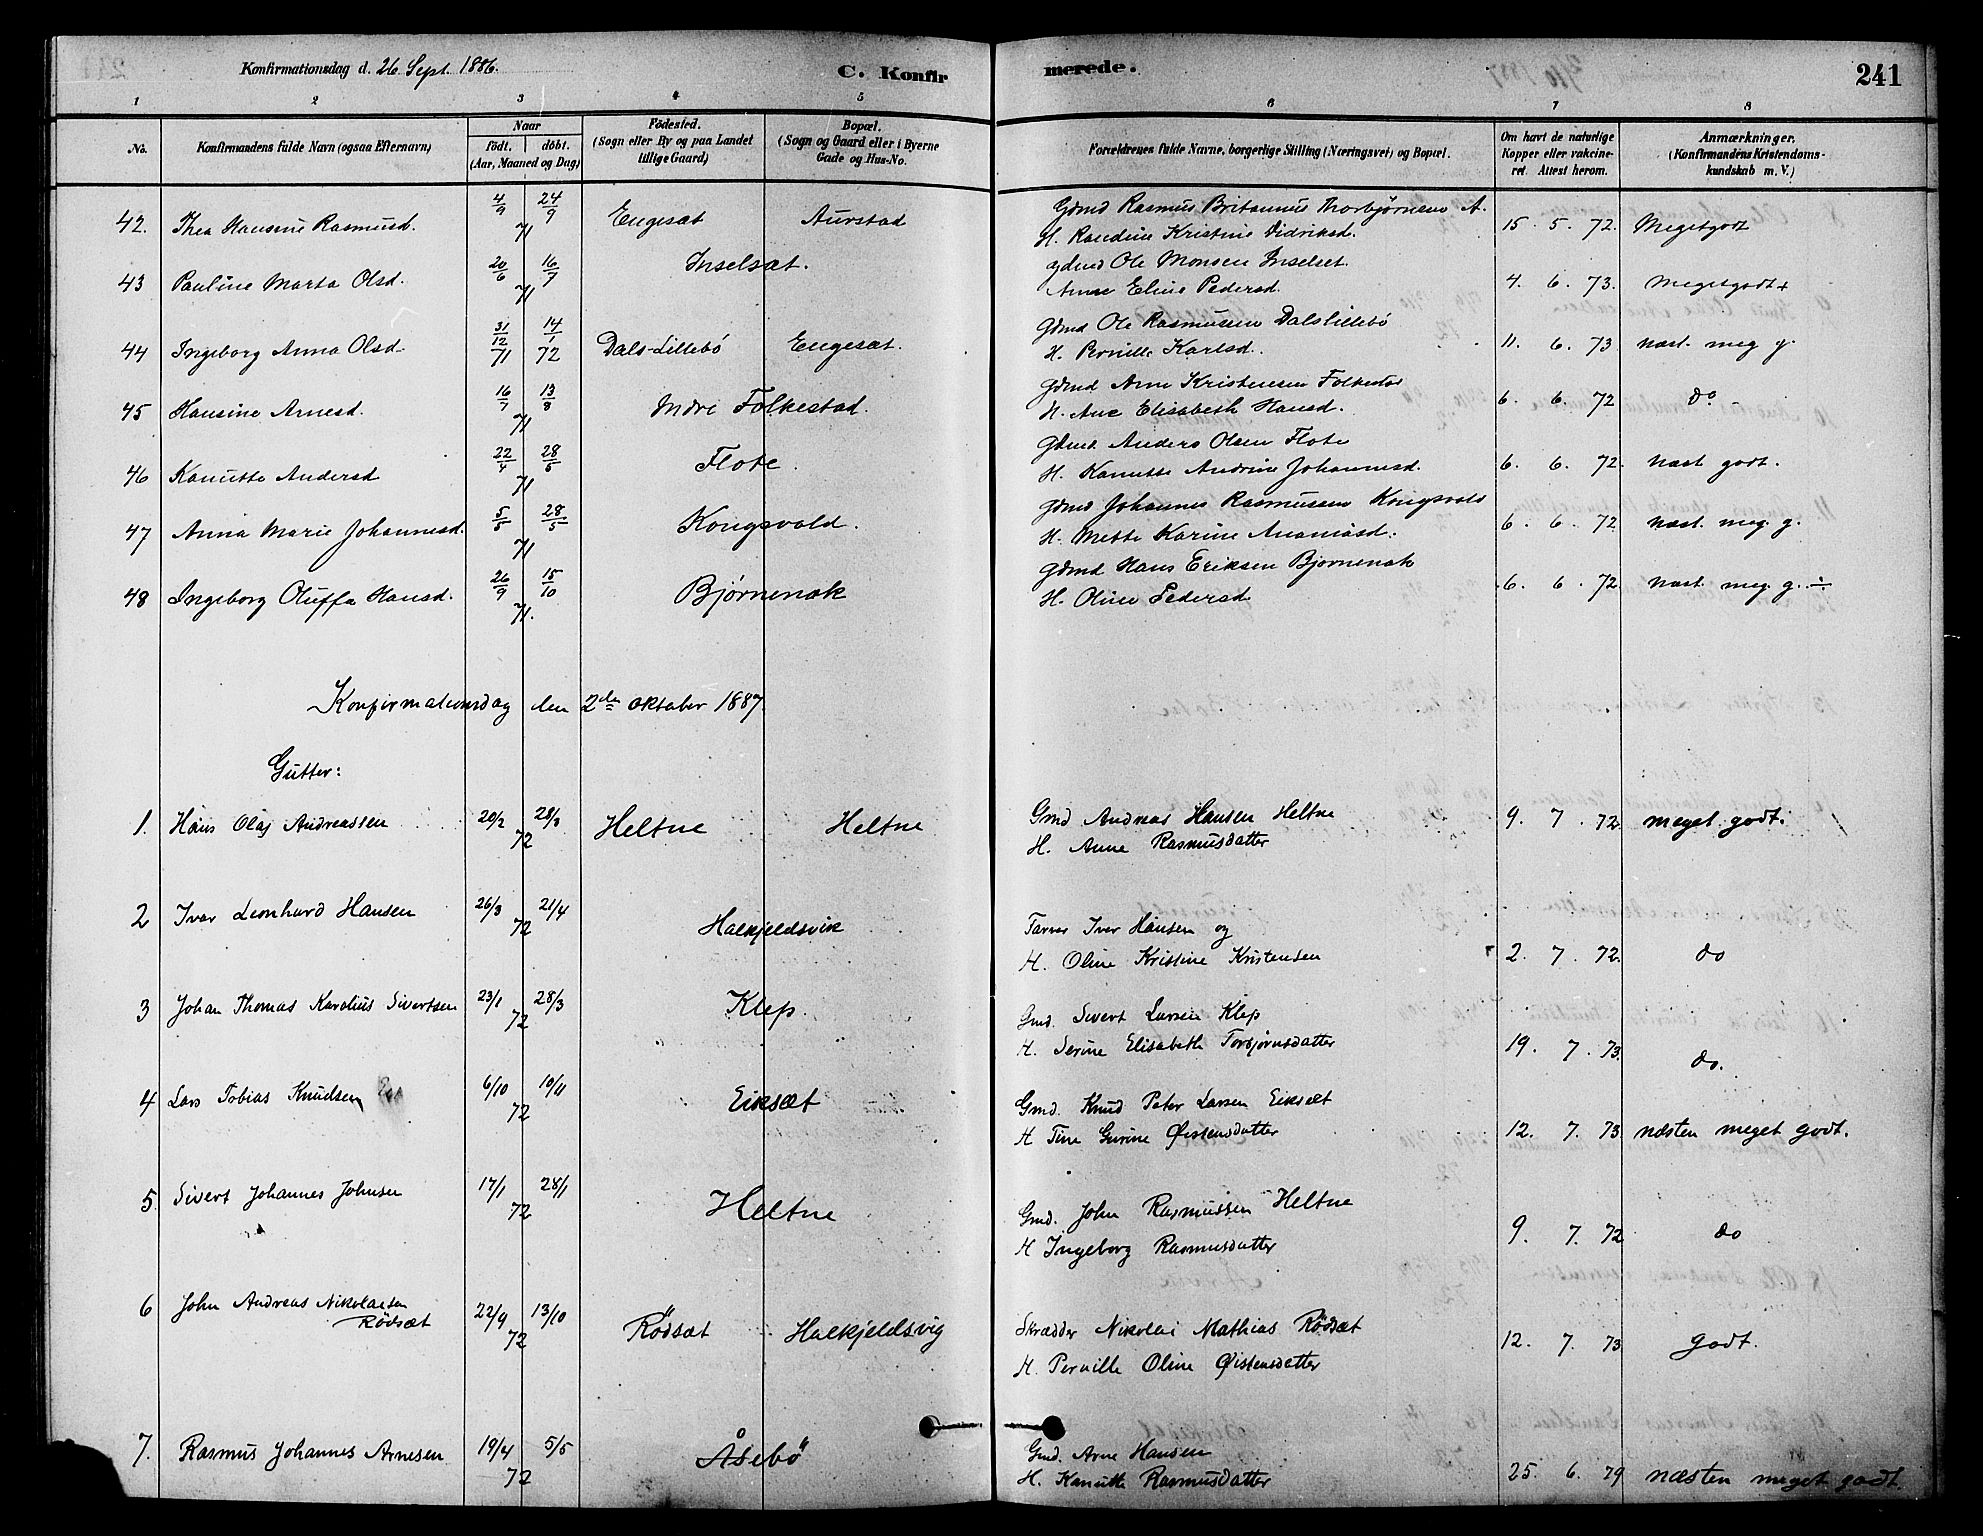 Konfirmationsdag d. 26. Sept. 1886. C. Konfirmerede. 241
1 2 3 4 5 6 7 8
No. Konfirmandens fulde Navn (ogsaa Efternavn) Naar födt. döbt. (Aar, Maaned og Dag) Födested. (Sogn eller By og paa Landet tillige Gaard) Bopæl. (Sogn og Gaard eller i Byerne Gade og Hus-No. Forældrenes fulde Navne, borgerlige Stilling (Næringsvei) og Bopæl. Om havt de naturlige Kopper eller vakcineret. Attest herom. Anmærkninger. (Konfirmandens Kristendomskundskab m. V.)
42. Thea Hansine Rasmusd. 4/9 24/9 71 Engesæt Aurstad Gdmd Rasmus Britannus Thorbjørnsen A.
H. Randine Kristine Didriksd. 15. 5. 72. Megetgodt
43 Pauline Marta Olsd. 20/6 16/7 71 Inselsæt. Gdmd Ole Monsen Inselset.
Anne Eline Pedersd. 4. 6. 73. Megetgodt+
44 Ingeborg Anna Olsd. 31/12 71 14/1 72 Dals-Lillebö Engesæt. Gdmd Ole Rasmussen Dalslillebö
H. Pernille Karlsd. 11. 6. 73 næst. meg g.
45 Hansine Arnesd. 16/7 13/8 71 Indre Folkestad. Gdmd Arne Kristensen Folkestad
H. Ane Elisabeth Hansd. 6. 6. 72 do
46 Kanutte Andersd 22/4 28/5 71 Flote. Gdmd. Anders Olsen Flote
H. Kanutte Andrine Johannesd. 6. 6. 72. næst godt.
47 Anna Marie Johannesd. 5/5 28/5 71 Kongsvold. Gdmd Johannes Rasmussen Kongsvold
H. Mette Karine Ananiasd. 6. 6. 72. næst. meg. g.
48 Ingeborg Oluffa Hansd. 26/9 15/10 71. Bjørnenak Gdmd Hans Eriksen Bjørnenak
H. Oline Pedersd 6. 6. 72 næst meg g. ÷
Konfirmationsdag den 2den oktober 1887.
Gutter:
1. Hans Olaj Andreassen 20/2 28/3 72 Heltne Heltne Gmd Andreas Hansen Heltne
H. Anne Rasmusdatter 9. 7. 72 meget godt.
2 Ivar Leonhard Hansen 26/3 21/4 72 Halkjeldsvik Farver Iver Hansen og
H. Oline Kristine Kristensen 2. 7. 72. do
3 Johan Thomas Karolius Sivertsen 23/1 28/3 72 Klep. Gmd. Sivert Larsen Klep
H. Serine Elisabeth Torbjørnsdatter 19. 7. 73. do.
4 Lars Tobias Knudsen 6/10 10/11 72 Eiksæt Gmd. Knud Peter Larsen Eiksæt
H Tine Gurine Øistensdatter 12. 7. 73 næsten meget godt.
5. Sivert Johannes Johnsen 17/1 28/1 72 Heltne Gmd. John Rasmussen Heltne
H Ingeborg Rasmusdatter 9. 7. 72 do
6 John Andreas Nikolaisen
Rödsæt 22/9 13/10 72 Rödsæt Halkjeldsvig Skrædder Nikolai Mathias Rödsæt
H. Pernille Oline Øistensdatter 12. 7. 73 godt.
7. Rasmus Johannes Arnesen 19/4 5/5 72 Åsebö Gmd. Arne Hansen
H. Kanutte Rasmusdatter 25. 6. 79 næsten meget godt.